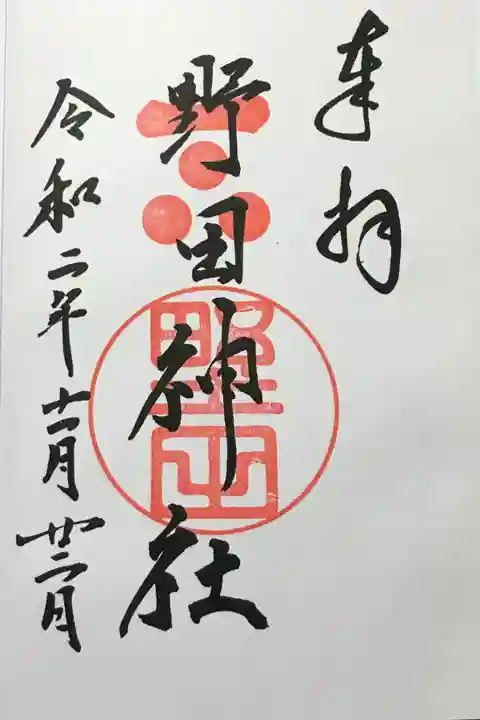 奉拝
野田神社
令和二年十一月廿二日